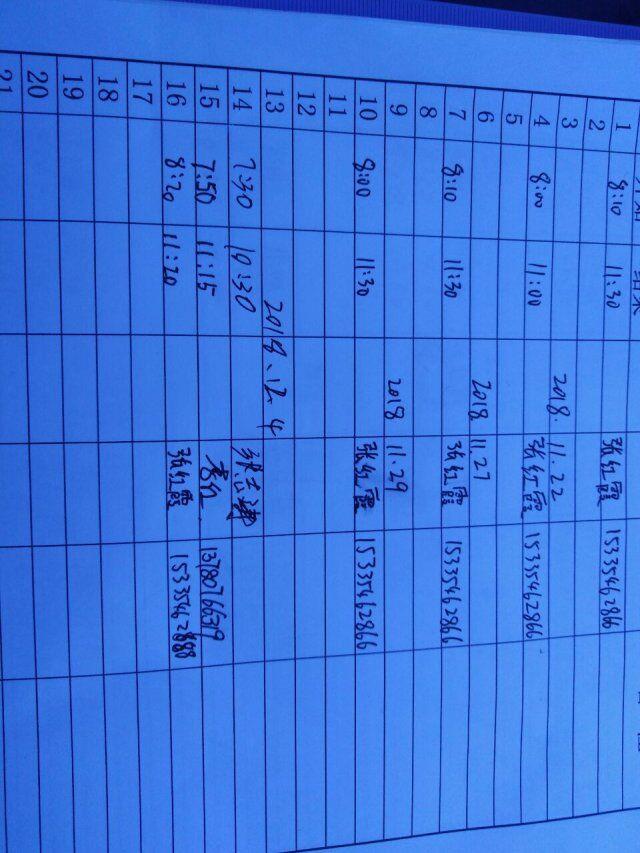 结束
1 8:10 11:30 张红霞 15335462866
2
3 2018. 11.22
4 8:00 11:00 张红霞 15335462866
5
6 2018 11.27
7 8:10 11:30 张红霞 15335462866
8
9 2018 11.29
10 8:00 11:30 张红霞 15335462866
11
12
13 2018.12.4
14 7:30 10:30
15 7:50 11:15 13780766319
16 8:20 11:20 张红霞 15335462888
17
18
19
20
21